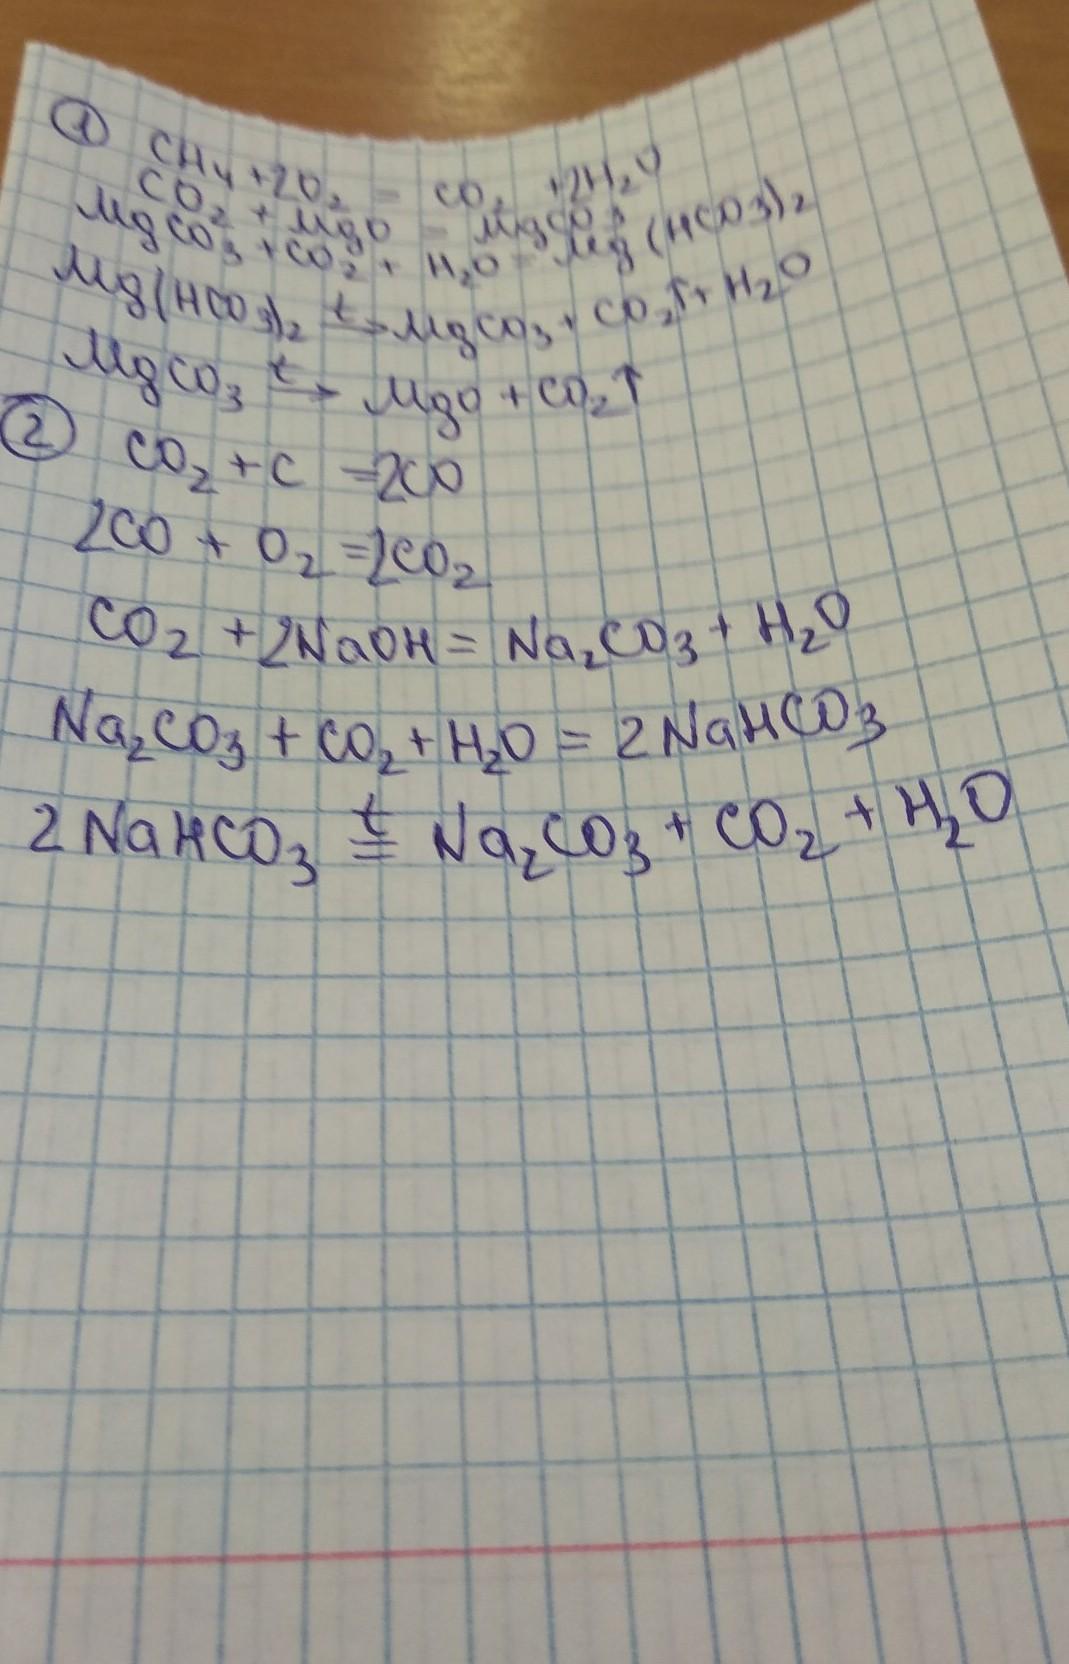 ① CH₄ + 2O₂ = CO₂ + 2H₂O
CO₂ + MgO = MgCO₃
MgCO₃ + CO₂ + H₂O = Mg(HCO₃)₂
Mg(HCO₃)₂ t→ MgCO₃ + CO₂↑ + H₂O
MgCO₃ t→ MgO + CO₂↑
② CO₂ + C = 2CO
2CO + O₂ = 2CO₂
CO₂ + 2NaOH = Na₂CO₃ + H₂O
Na₂CO₃ + CO₂ + H₂O = 2NaHCO₃
2NaHCO₃ t= Na₂CO₃ + CO₂ + H₂O